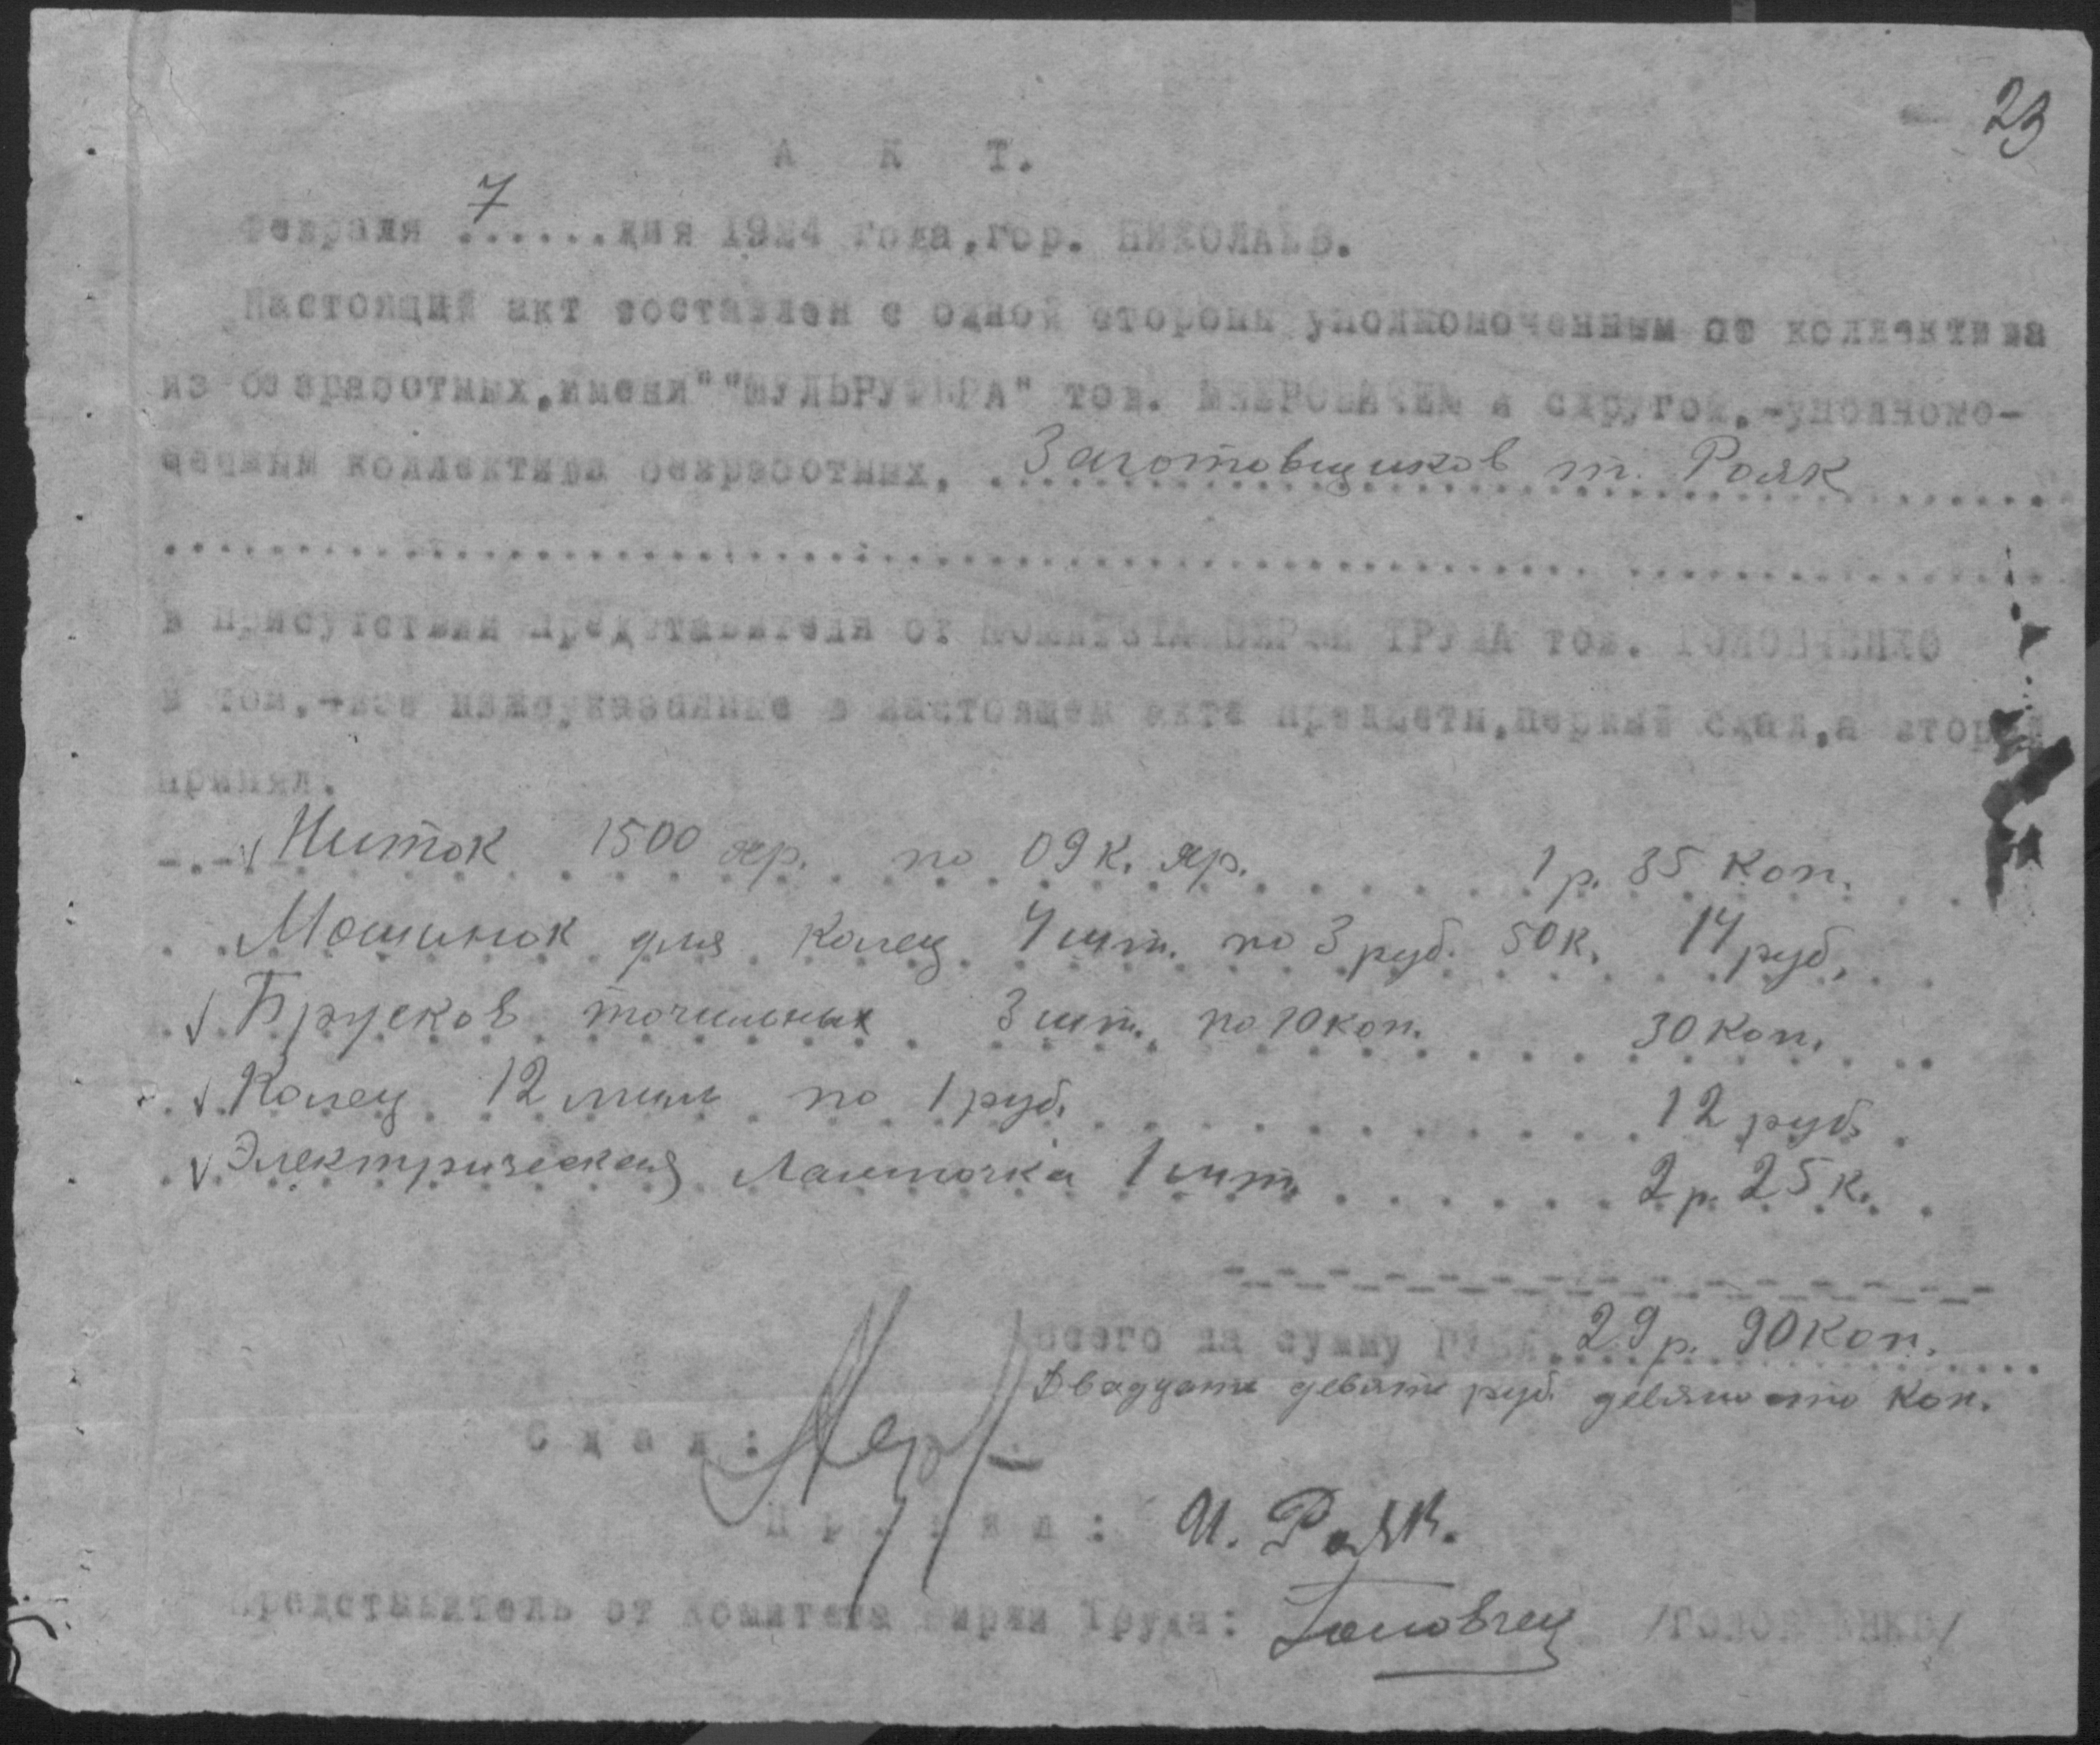 23
А К Т.
Февраля 7......дня 1924 года,гор. НИКОЛАЕВ.
Настоящий акт составлен с одной стороны уполномоченным от коллектива
из безработных,имени""ШУЛЬРУФЕРА" тов. и сдругой,-уполномо-
ченным коллектива безработных, Заготовщиков т. Рояк
в присутствии представителя от КОМИТЕТА БИРЖИ ТРУДА тов. ГОЛОВЧЕНКО
в том,-все нижеуказанные в настоящем акте предметы,первый сдал,а второй
принял.
Ниток 1500 яр. по 09 к. яр. 1 р. 35 коп.
Машинок для колец 4 шт. по 3 руб. 50 к. 14 руб.
Брусков точильных 3 шт. по 10 коп. 30 коп.
Колец 12 по 1 руб. 12 руб.
Электрическая Лампочка 1 шт. 2 р. 25 к.
Всего на сумму РУБЛ. 29 р. 90 коп.
Двадцать девять руб. девяносто коп.
С д а л :
П р и н я л : И. Рояк.
Представитель от Комитета Биржи Труда: /ГОЛОВЧЕНКО/